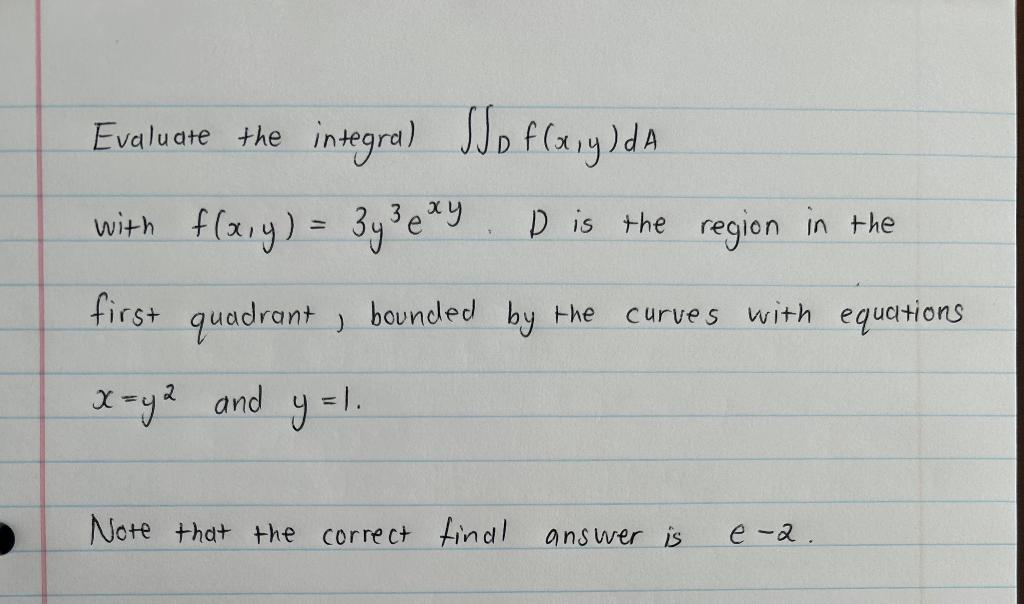 Evaluate the integral ∬_D f(x,y)dA
with f(x,y) = 3y³e^{xy}. D is the region in the
first quadrant, bounded by the curves with equations
x=y² and y=1.
Note that the correct final answer is e-2.